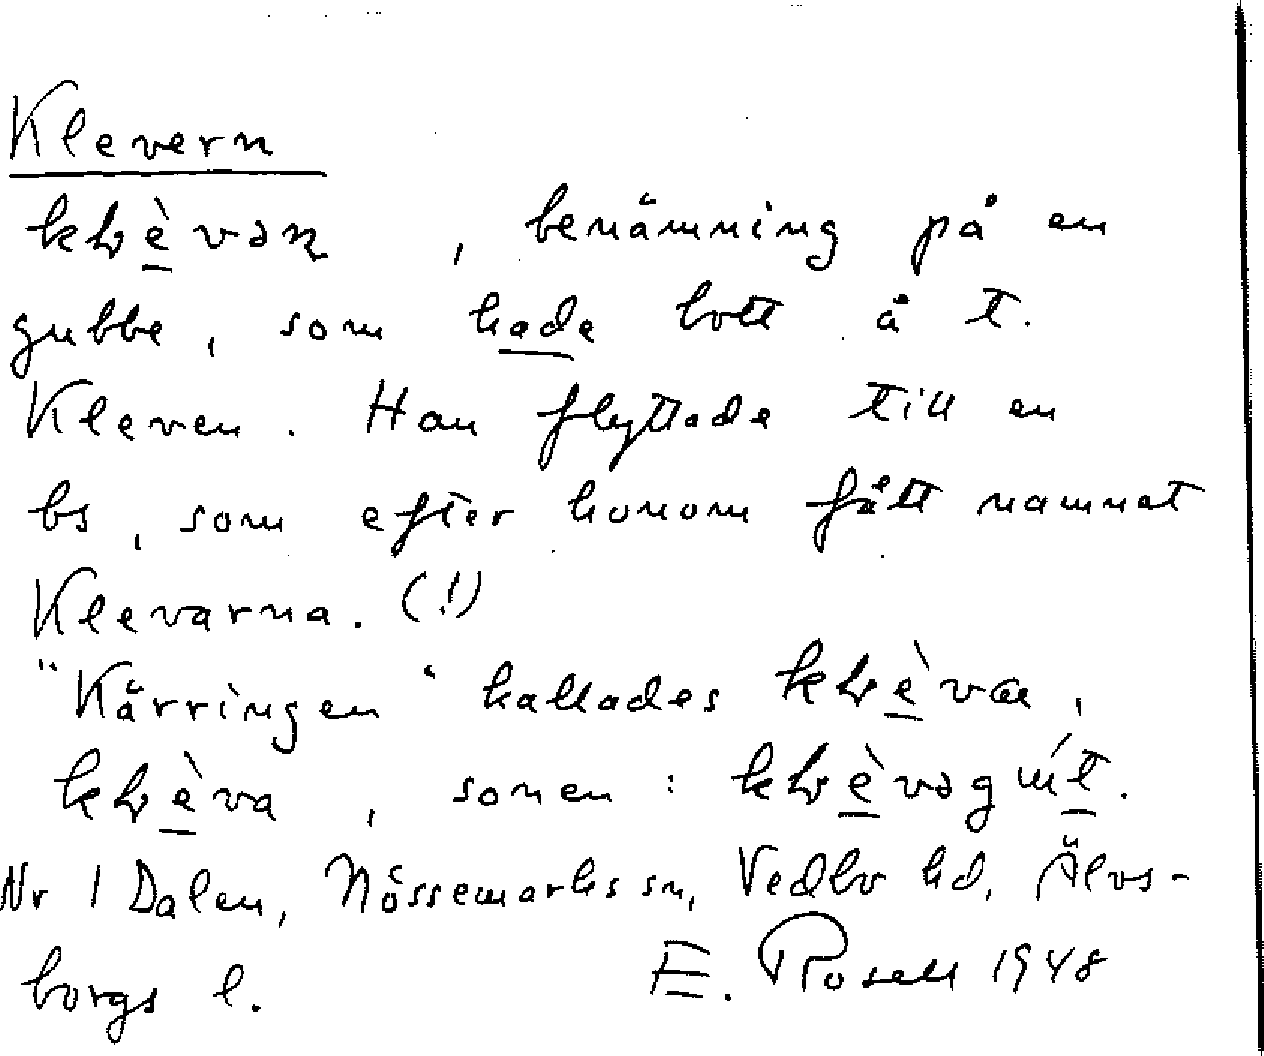 Klevern
, benämning på en
gubbe, som hade bott å t.
Kleven. Han flyttade till en
bs, som efter honom fått namnet
Klevarna. (!)
"Kärringen" kallades
, sonen:
Nr 1 Dalen, Nössemarks sn, Vedbo hd, Älvs-
borgs l. E. Rosell 1948